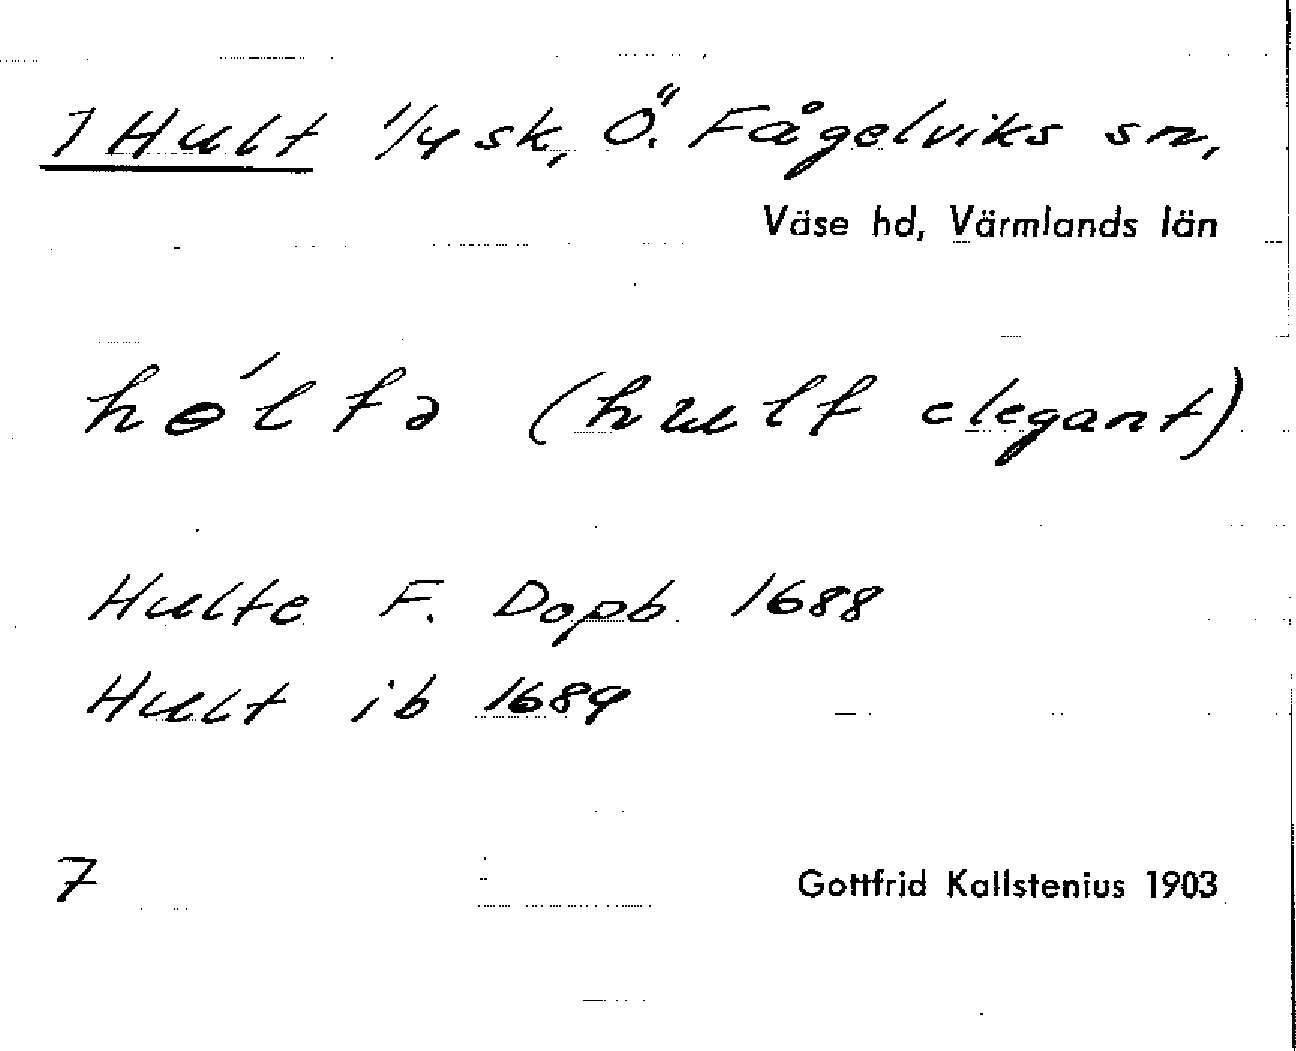 1 Hult 1/4 sk, Ö. Fågelviks sn,
Väse hd, Värmlands län
hɵ́ltə (hult elegant)
Hulte F. Dopb. 1688
Hult ib 1689
7
Gottfrid Kallstenius 1903